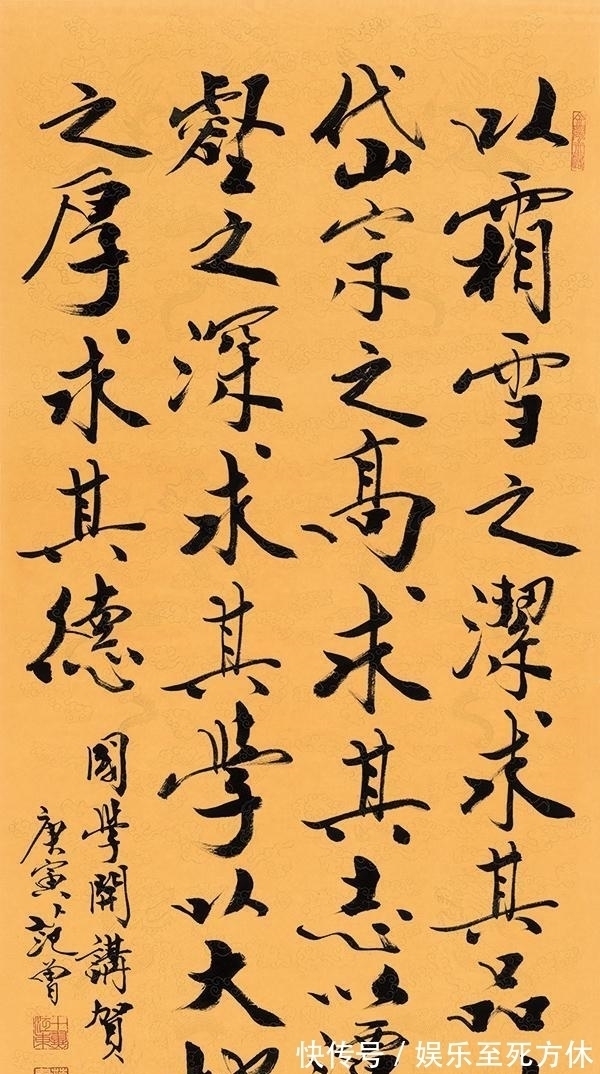 以霜雪之潔求其品
岱宗之高求其志以
壑之深求其學以大
之厚求其德
國學開講賀
庚寅范曾
快传号 / 娱乐至死方休